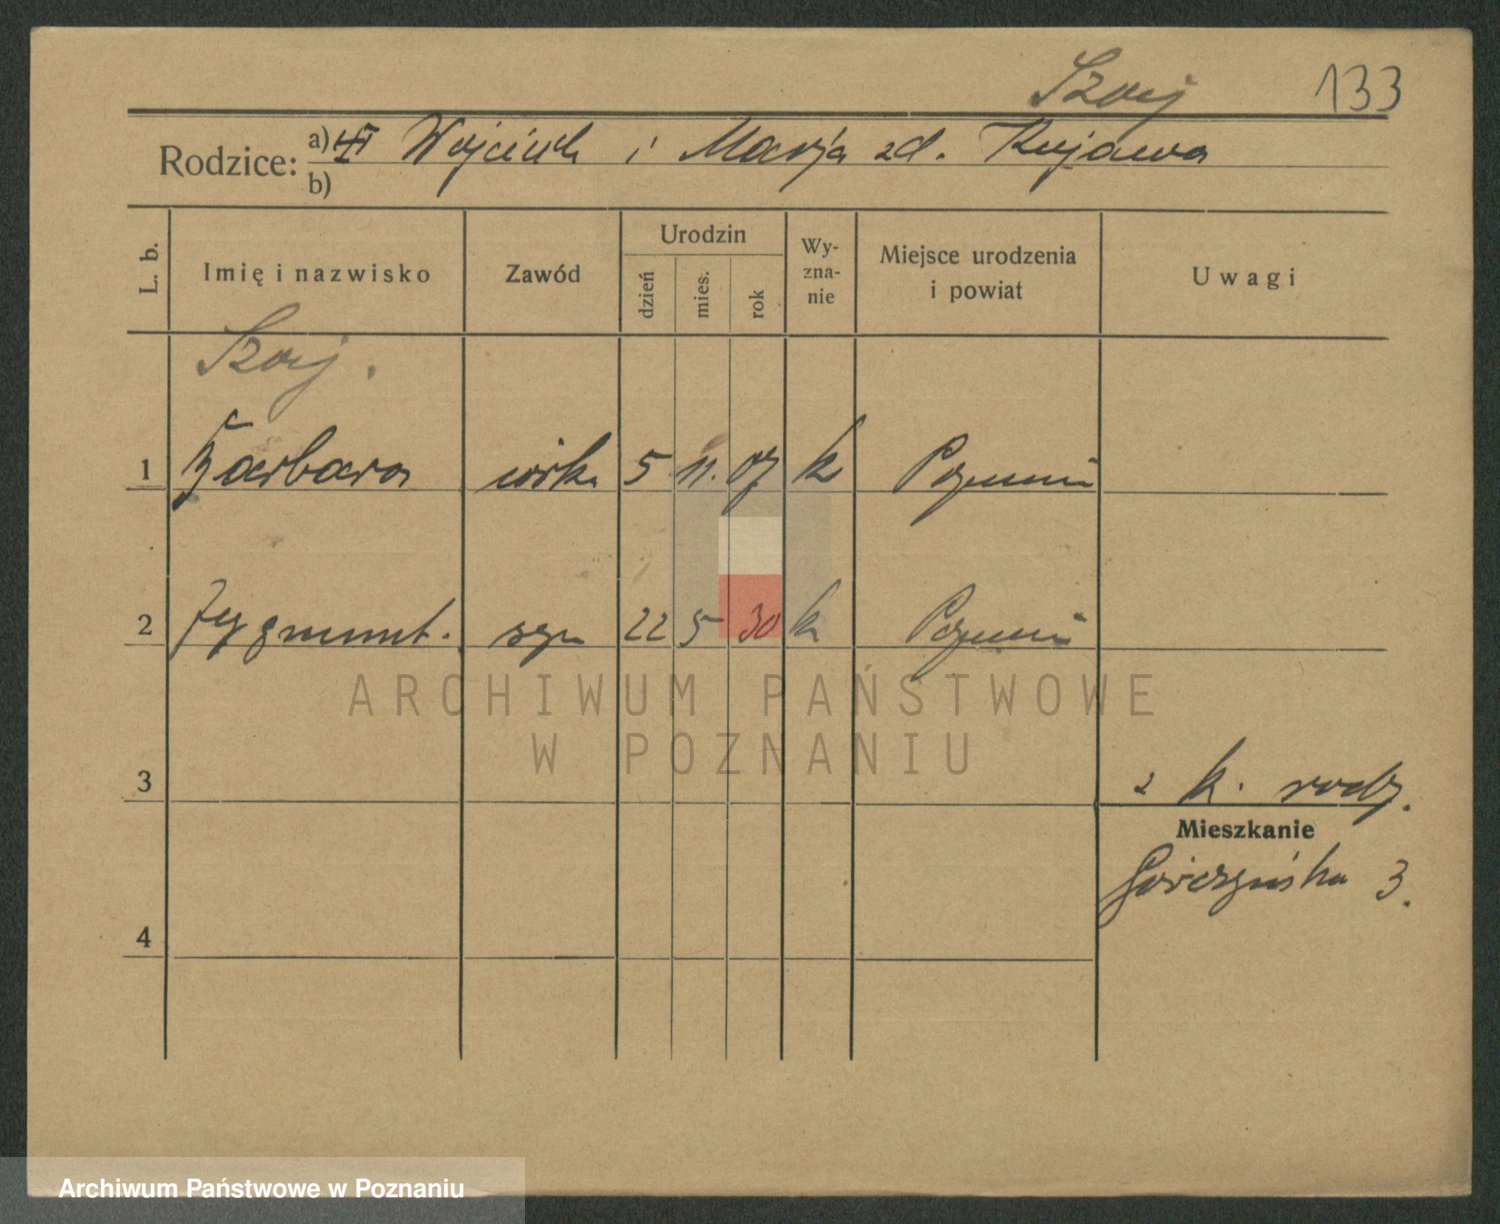 Szaj 133
Rodzice: a) Wojciech i Marja zd. Kujawa
b)
L. b. Imię i nazwisko Zawód Urodzin dzień mies. rok Wy-zna-nie Miejsce urodzenia i powiat Uwagi
Szaj.
1 Barbara córka 5 11. 07 k Poznań
2 Zygmunt. syn 22 5 30 k Poznań
ARCHIWUM PAŃSTWOWE
W POZNANIU
3 2 k. rodz.
Mieszkanie
Górczyńska 3.
4
Archiwum Państwowe w Poznaniu